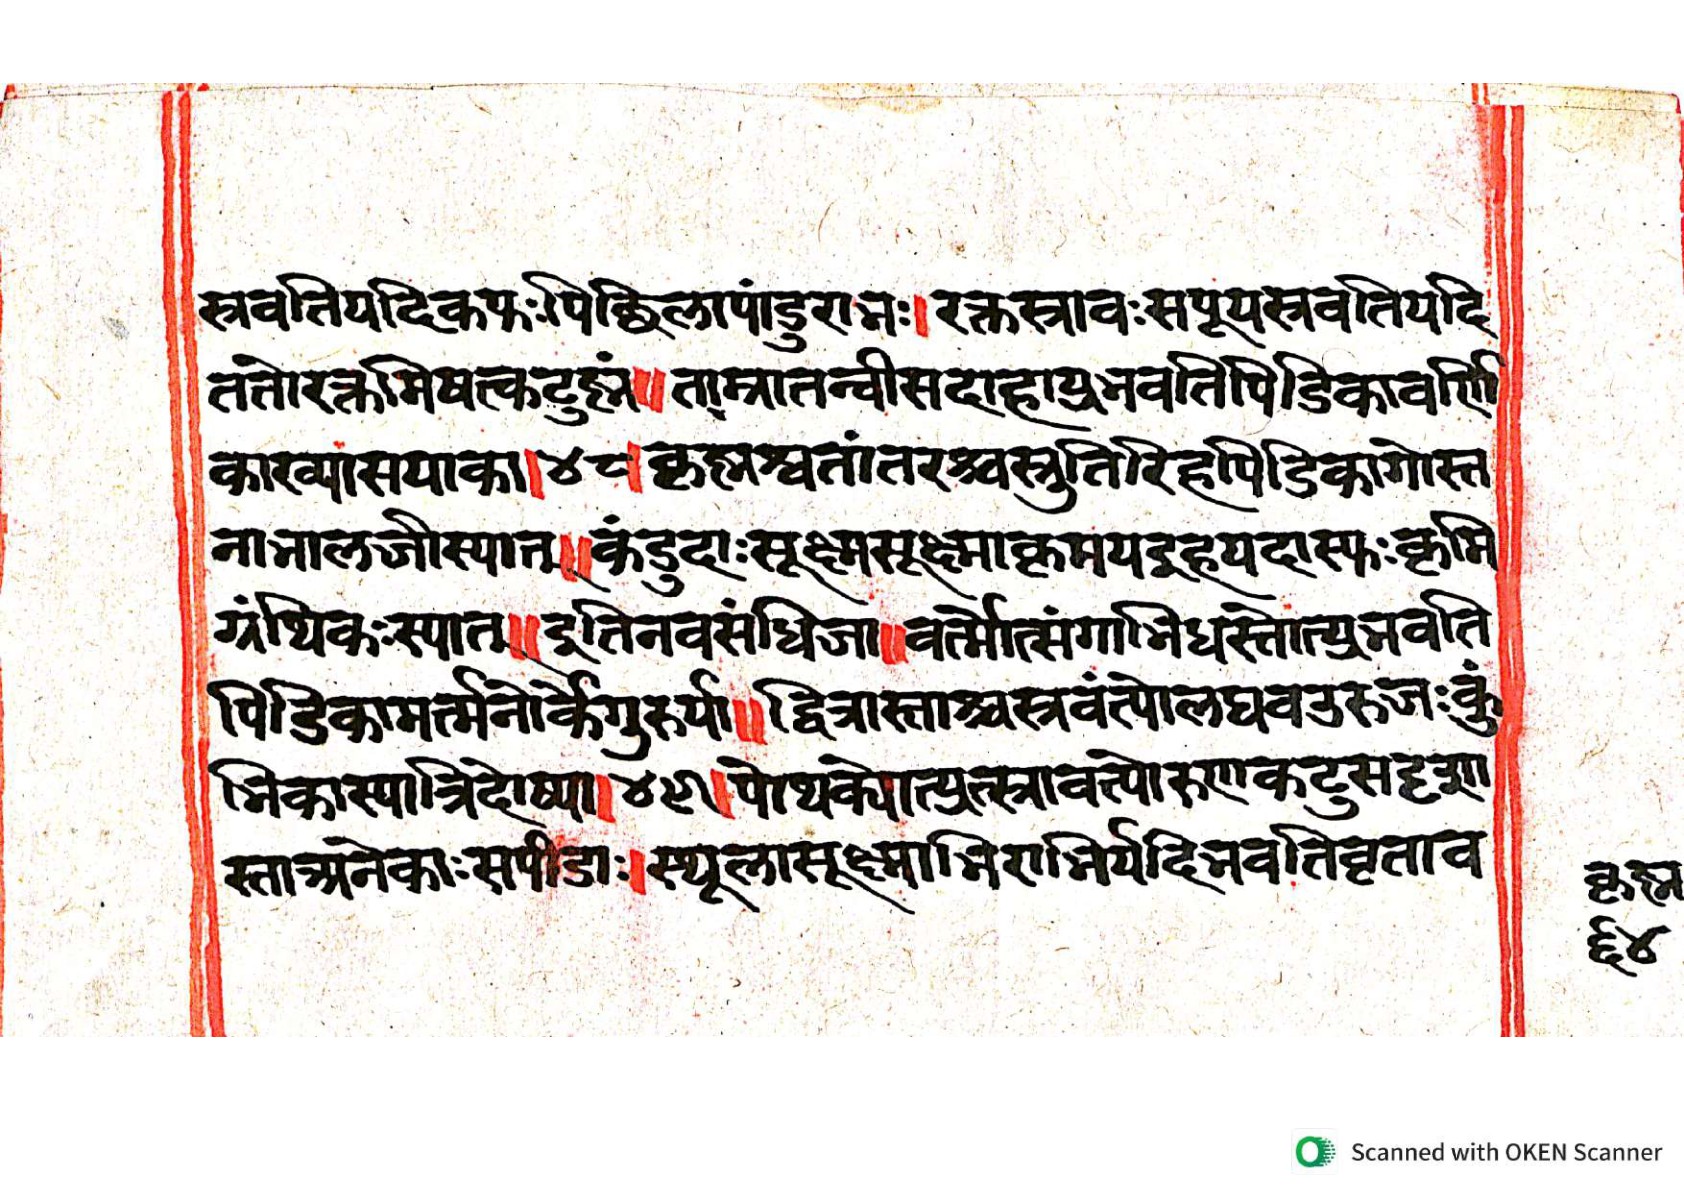 स्त्रवतियदिकफःपिच्छिलापांडुराभः। रक्तस्त्रावःसपूयस्त्रवतियदि
ततोरक्तमिषत्कटुह्मं॥ ताम्रातन्वीसदाहाप्रभवतिपिडिकावर्णि
काख्यासयाका।४८।कृह्मश्चतांतरश्चस्त्रुतिरिहपिडिकागोस्त
नाभालजीस्यात्॥कंडुदाःसूक्ष्मसूक्ष्माकृमयइहयदास्फःकृमि
ग्रंथिकःस्यात्॥इतिनवसंधिजा॥वर्त्मोत्संगाभिधस्तोत्प्रभवति
पिडिकामर्त्मनोर्कैगुरुर्या॥द्वित्रास्ताश्चस्त्रवंत्योलघवउरुजःकुं
भिकास्यात्रिदोष्या।४९।पोथक्योत्प्रत्स्त्रावत्योरुणकटुसदृशा
स्ताअनेकाःसपीडाः।स्थूलासूक्ष्माभिराभिर्यदिभवतिवृताव
कृह्म
६४
Scanned with OKEN Scanner